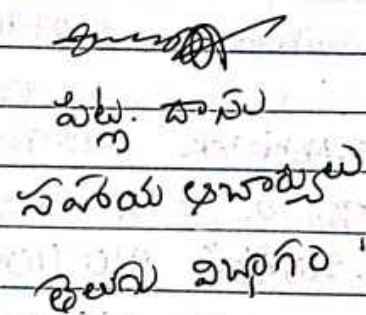 పెట్ల. దాసు
సహాయ ఆచార్యులు
తెలుగు విభాగం